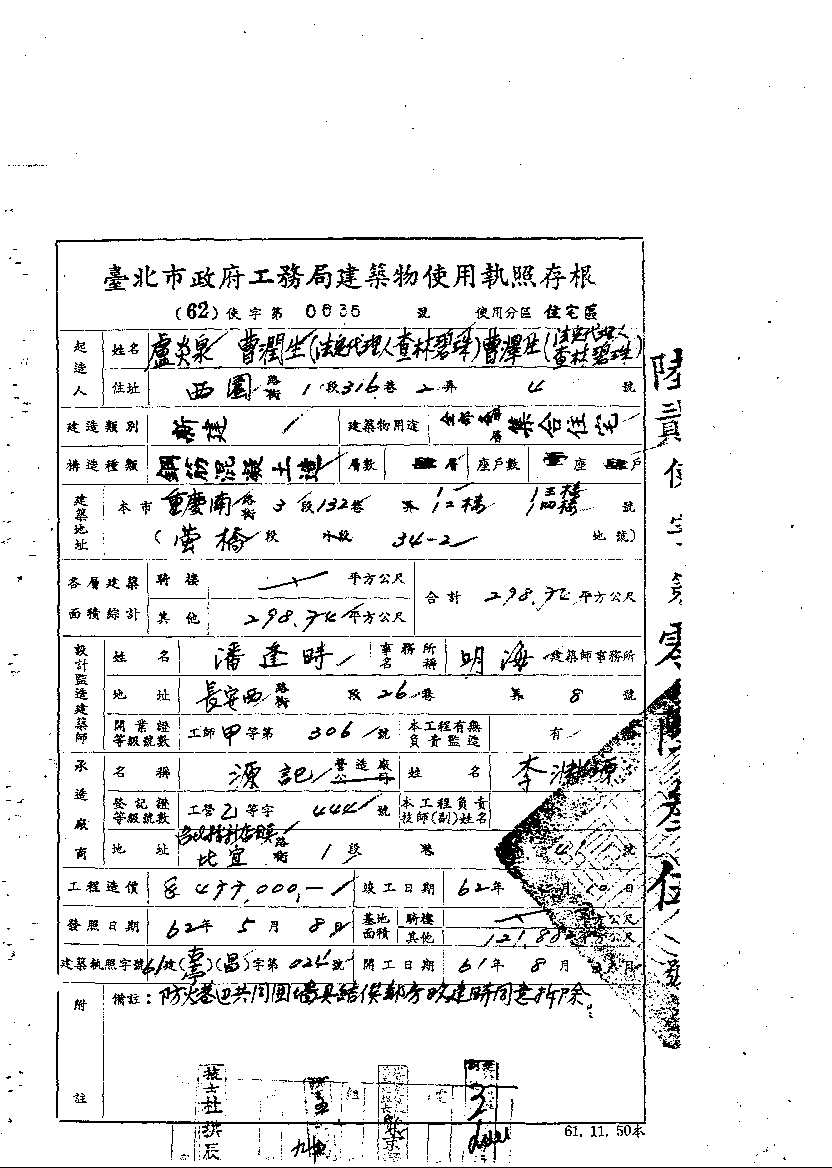 臺北市政府工務局建築物使用執照存根
(62)使字第 0635 號 使用分區 住宅區
起造人 姓名 盧炎泉 曹潤生(法定代理人查林碧珠)曹澤生(法定代理人查林碧珠)
住址 西園路街 1段316巷 2弄 4 號
建造類別 新建 建築物用途 全部 集合住宅
構造種類 鋼筋混凝土造 層數 層 座戶數 座 戶
建築地址 本市 重慶南路街 3段132巷 弄 號
(螢橋段 小段 34-2 地號)
各層建築面積綜計 騎樓 平方公尺 合計 298.74平方公尺
其他 298.74平方公尺
設計監造建築師 姓名 潘逢時 事務所名稱 明海 建築師事務所
地址 長安西路街 段26巷 弄 8 號
開業證等級號數 工師甲等第 306 號 本工程有無負責監造 有
承造廠商 名稱 源記 營造廠公司 姓名 李
登記證等級號數 工營乙等字 444 號 本工程負責技師(副)姓名
地址 路街 1段 巷 號
工程造價 477,000,- 竣工日期 62年 月 10日
發照日期 62年5月8日 基地面積 騎樓 平方公尺
其他 121.88 平方公尺
建築執照字號 61建( )(昌)字第024號 開工日期 61年8月 日
附註 備註:防火巷巴共同圍墻具結保部分改建時同意拆除
61.11.50本
陸貳使字第零陸叁伍號